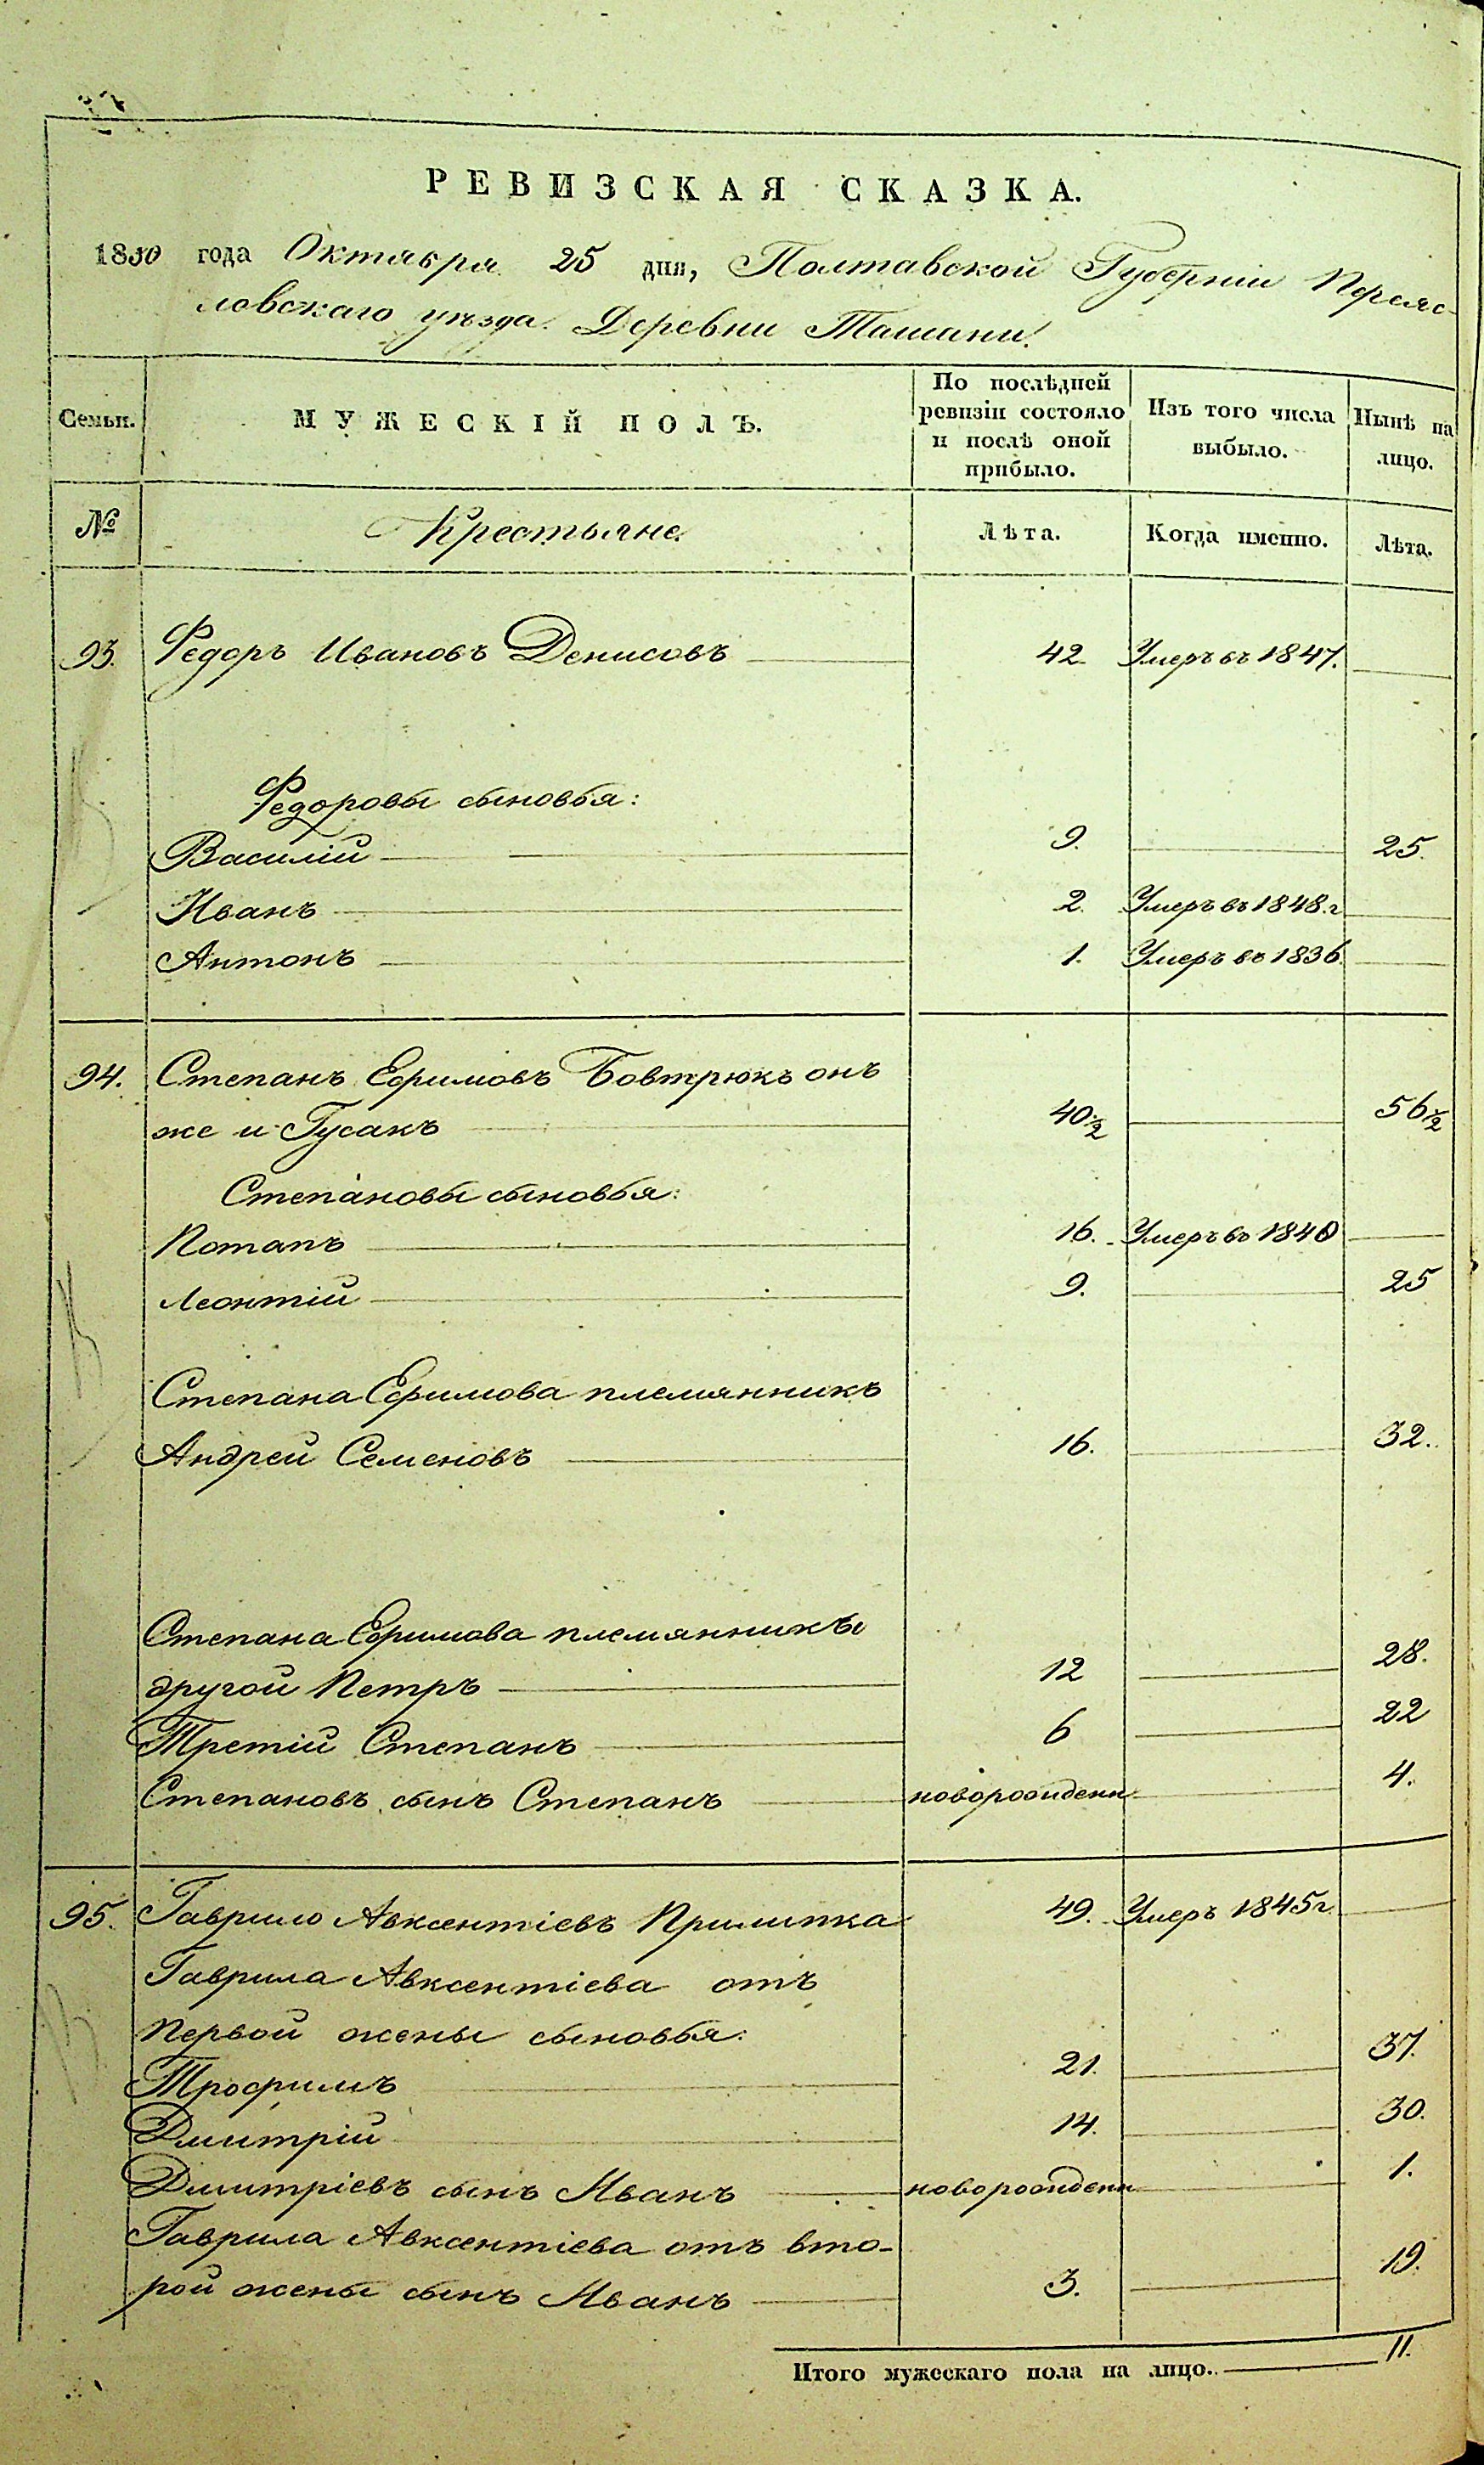 РЕВИЗСКАЯ СКАЗКА.
1850 года Октября 25 дня, Полтавской Губерніи Переяс-
ловскаго уѣзда. Деревни Ташани.
Семьи. МУЖЕСКІЙ ПОЛЪ. По послѣдней ревизіи состояло и послѣ оной прибыло. Изъ того числа выбыло. Нынѣ на лицо.
№ Крестьяне. Лѣта. Когда именно. Лѣта.
93. Федоръ Ивановъ Денисовъ 42 Умеръ въ 1847.
Федоровы сыновья:
Василій 9. 25.
Иванъ 2. Умеръ въ 1848.г
Антонъ 1. Умеръ въ 1836.
94. Степанъ Ефимовъ Бовтрюкъ онъ
же и Гусакъ 40½ 56½
Степановы сыновья:
Потапъ 16. Умеръ въ 1840
Леонтій 9. 25
Степана Ефимова племянникъ
Андрей Семеновъ 16. 32.
Степана Ефимова племянникъ
другой Петръ 12 28.
Третій Степанъ 6 22
Степановъ сынъ Степанъ новорожденн 4.
95. Гаврило Авксентіевъ Прилипка 49. Умеръ 1845г.
Гаврила Авксентіева отъ
первой жены сыновья:
Трофимъ 21. 37.
Дмитрій 14. 30.
Дмитріевъ сынъ Иванъ новорожденн 1.
Гаврила Авксентіева отъ вто-
рой жены сынъ Иванъ 3. 19.
Итого мужескаго пола на лицо. 11.